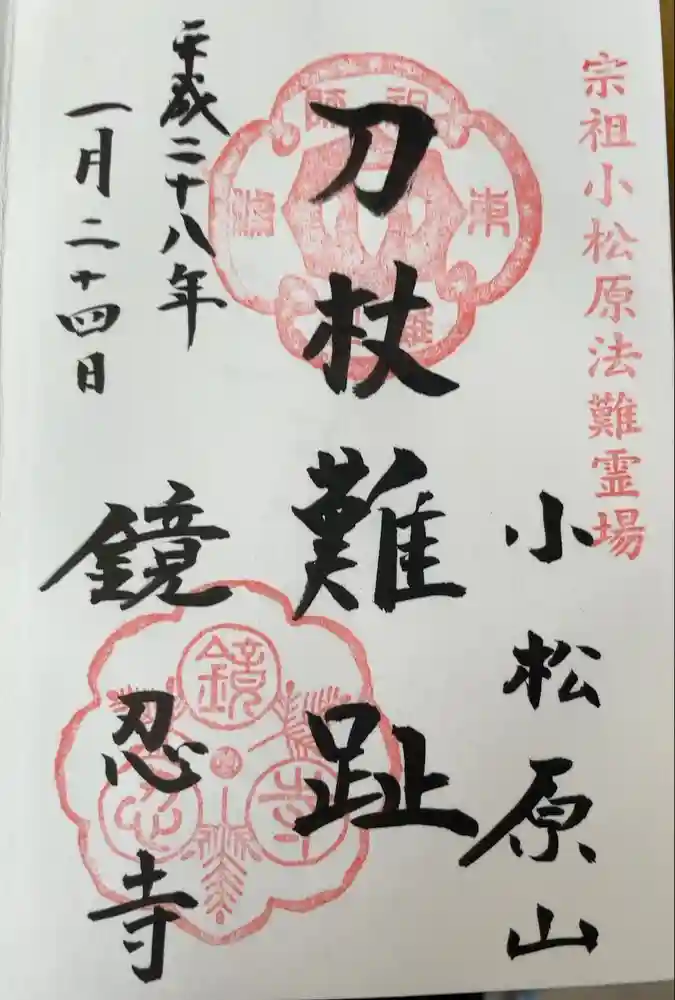 宗祖小松原法難霊場
小松原山
刀杖難趾
平成二十八年
一月二十四日
鏡忍寺
祖師
東
鏡
忍
寺